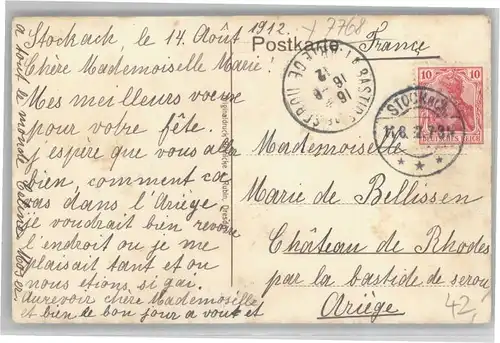 Stockach, le 14 Août 1912.
Chère Mademoiselle Marie!
Mes meilleurs voeux
pour votre fête.
j'espère que vous allez
bien, comment ca
vas dans l'Ariège.
je voudrait bien revoir
l'endroit ou je me
plaisait tant et ou
nous etions, si gai.
Aurevoir chère Mademoiselle
et bien de bon jour a vout et
a tout le monde
Postkarte
7768
France
10
10
DEUTSCHES REICH
STOCKACH
LA BASTIDE DE SEROU
ARIEGE
16
8
12
Mademoiselle
Marie de Bellissen
Château de Rhodes
par la bastide de serou
Ariège
42,